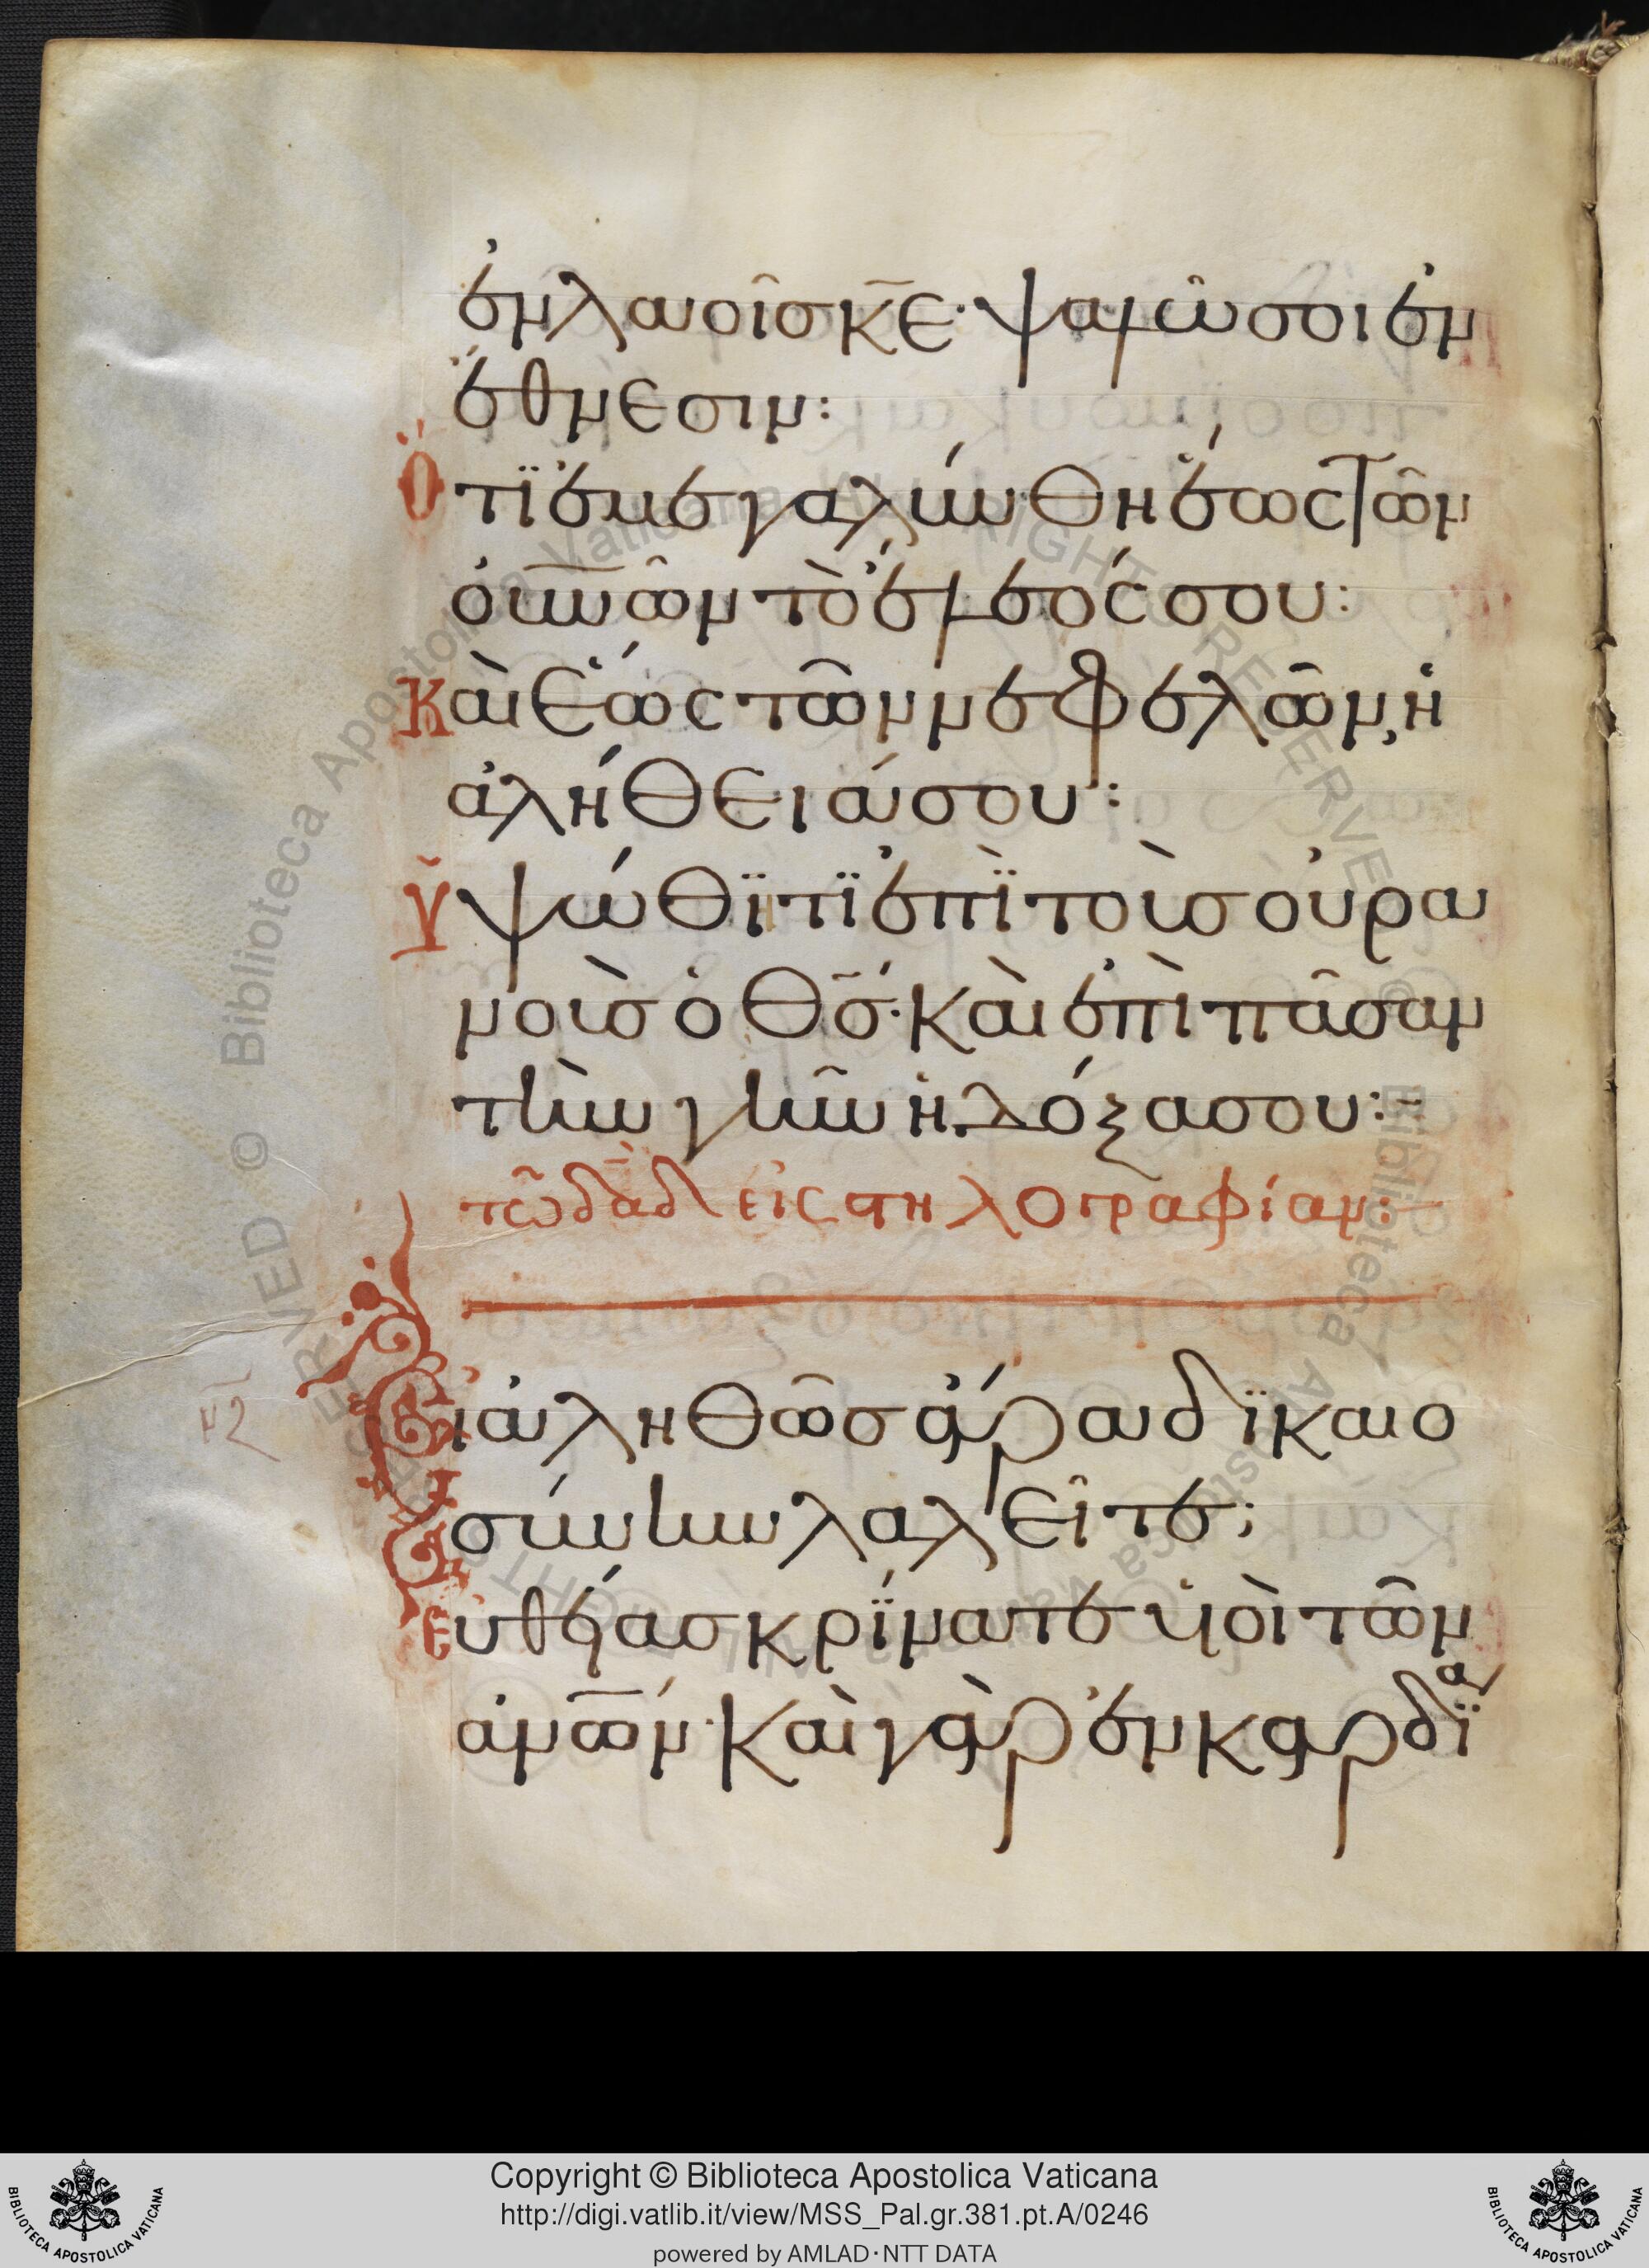 ἐν λαοῖς κ̅ε̅· ψαλῶ σοι ἐν
ἔθνεσιν:
Ὅτϊ ἐμεγαλύνθη ἕως τῶν
οὐν̅ῶν τὸ ἔλεός σου:
Καὶ ἕως τῶν νεφελῶν, ἡ
ἀλήθειά σου:
Ὑψώθϊτϊ ἐπῒ τοὺς οὐρα
νοὺς ὁ θ̅ς̅· καὶ ἐπὶ πᾶσαν
τὴν γῆν ἡ δόξα σου:
τῶ δαδ εἰς στηλογραφίαν:
νζ
Εἰ ἀληθῶς ἄρα δϊκαιο
σύνην λαλεῖτε;
Εὐθέας κρΐνατε υἱοὶ τῶν
ἀν̅ῶν· καὶ γὰρ ἐν καρδϊα
Copyright © Biblioteca Apostolica Vaticana
http://digi.vatlib.it/view/MSS_Pal.gr.381.pt.A/0246
powered by AMLAD·NTT DATA
BIBLIOTECA APOSTOLICA VATICANA
BIBLIOTECA APOSTOLICA VATICANA